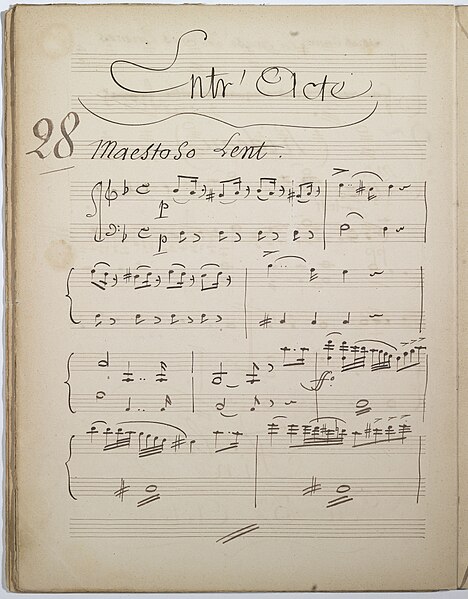 Entr' Acte
28
Maestoso Lent.
p
p
ff